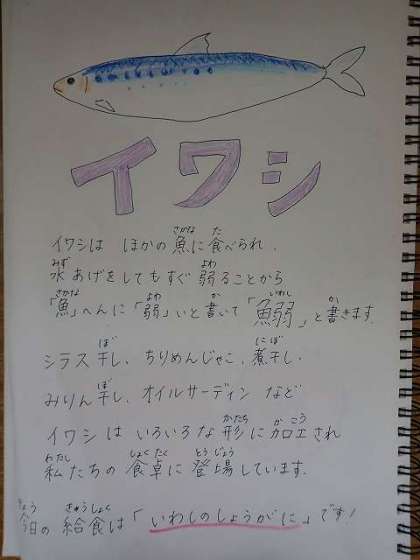 イワシ
イワシは ほかの 魚に食べられ、
水あげをしてもすぐ 弱ることから
「魚」へんに「弱」いと書いて「鰯」と書きます。
シラス干し、ちりめんじゃこ、煮干し、
みりん干し、オイルサーディン など
イワシは いろいろな 形に加工され
私たちの 食卓に 登場しています。
今日の 給食は「いわしのしょうがに」です!